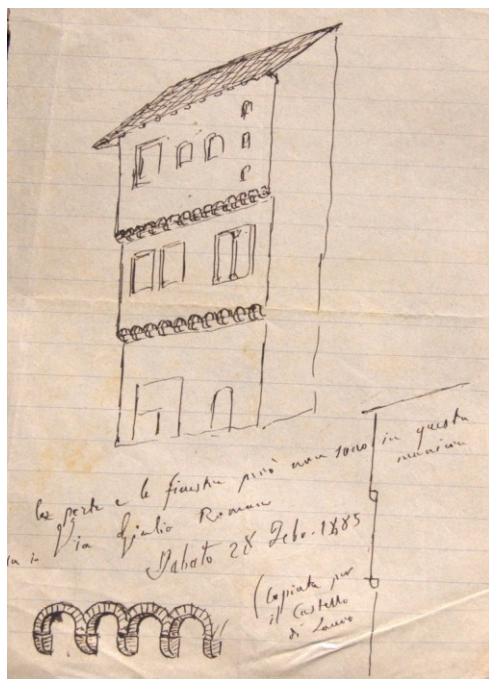 le porte e le finestre però non sono in questa
maniera
in Via Giulio Romano
Sabato 28 Febo. 1885
(Copiata per
il Castello
di Lauro